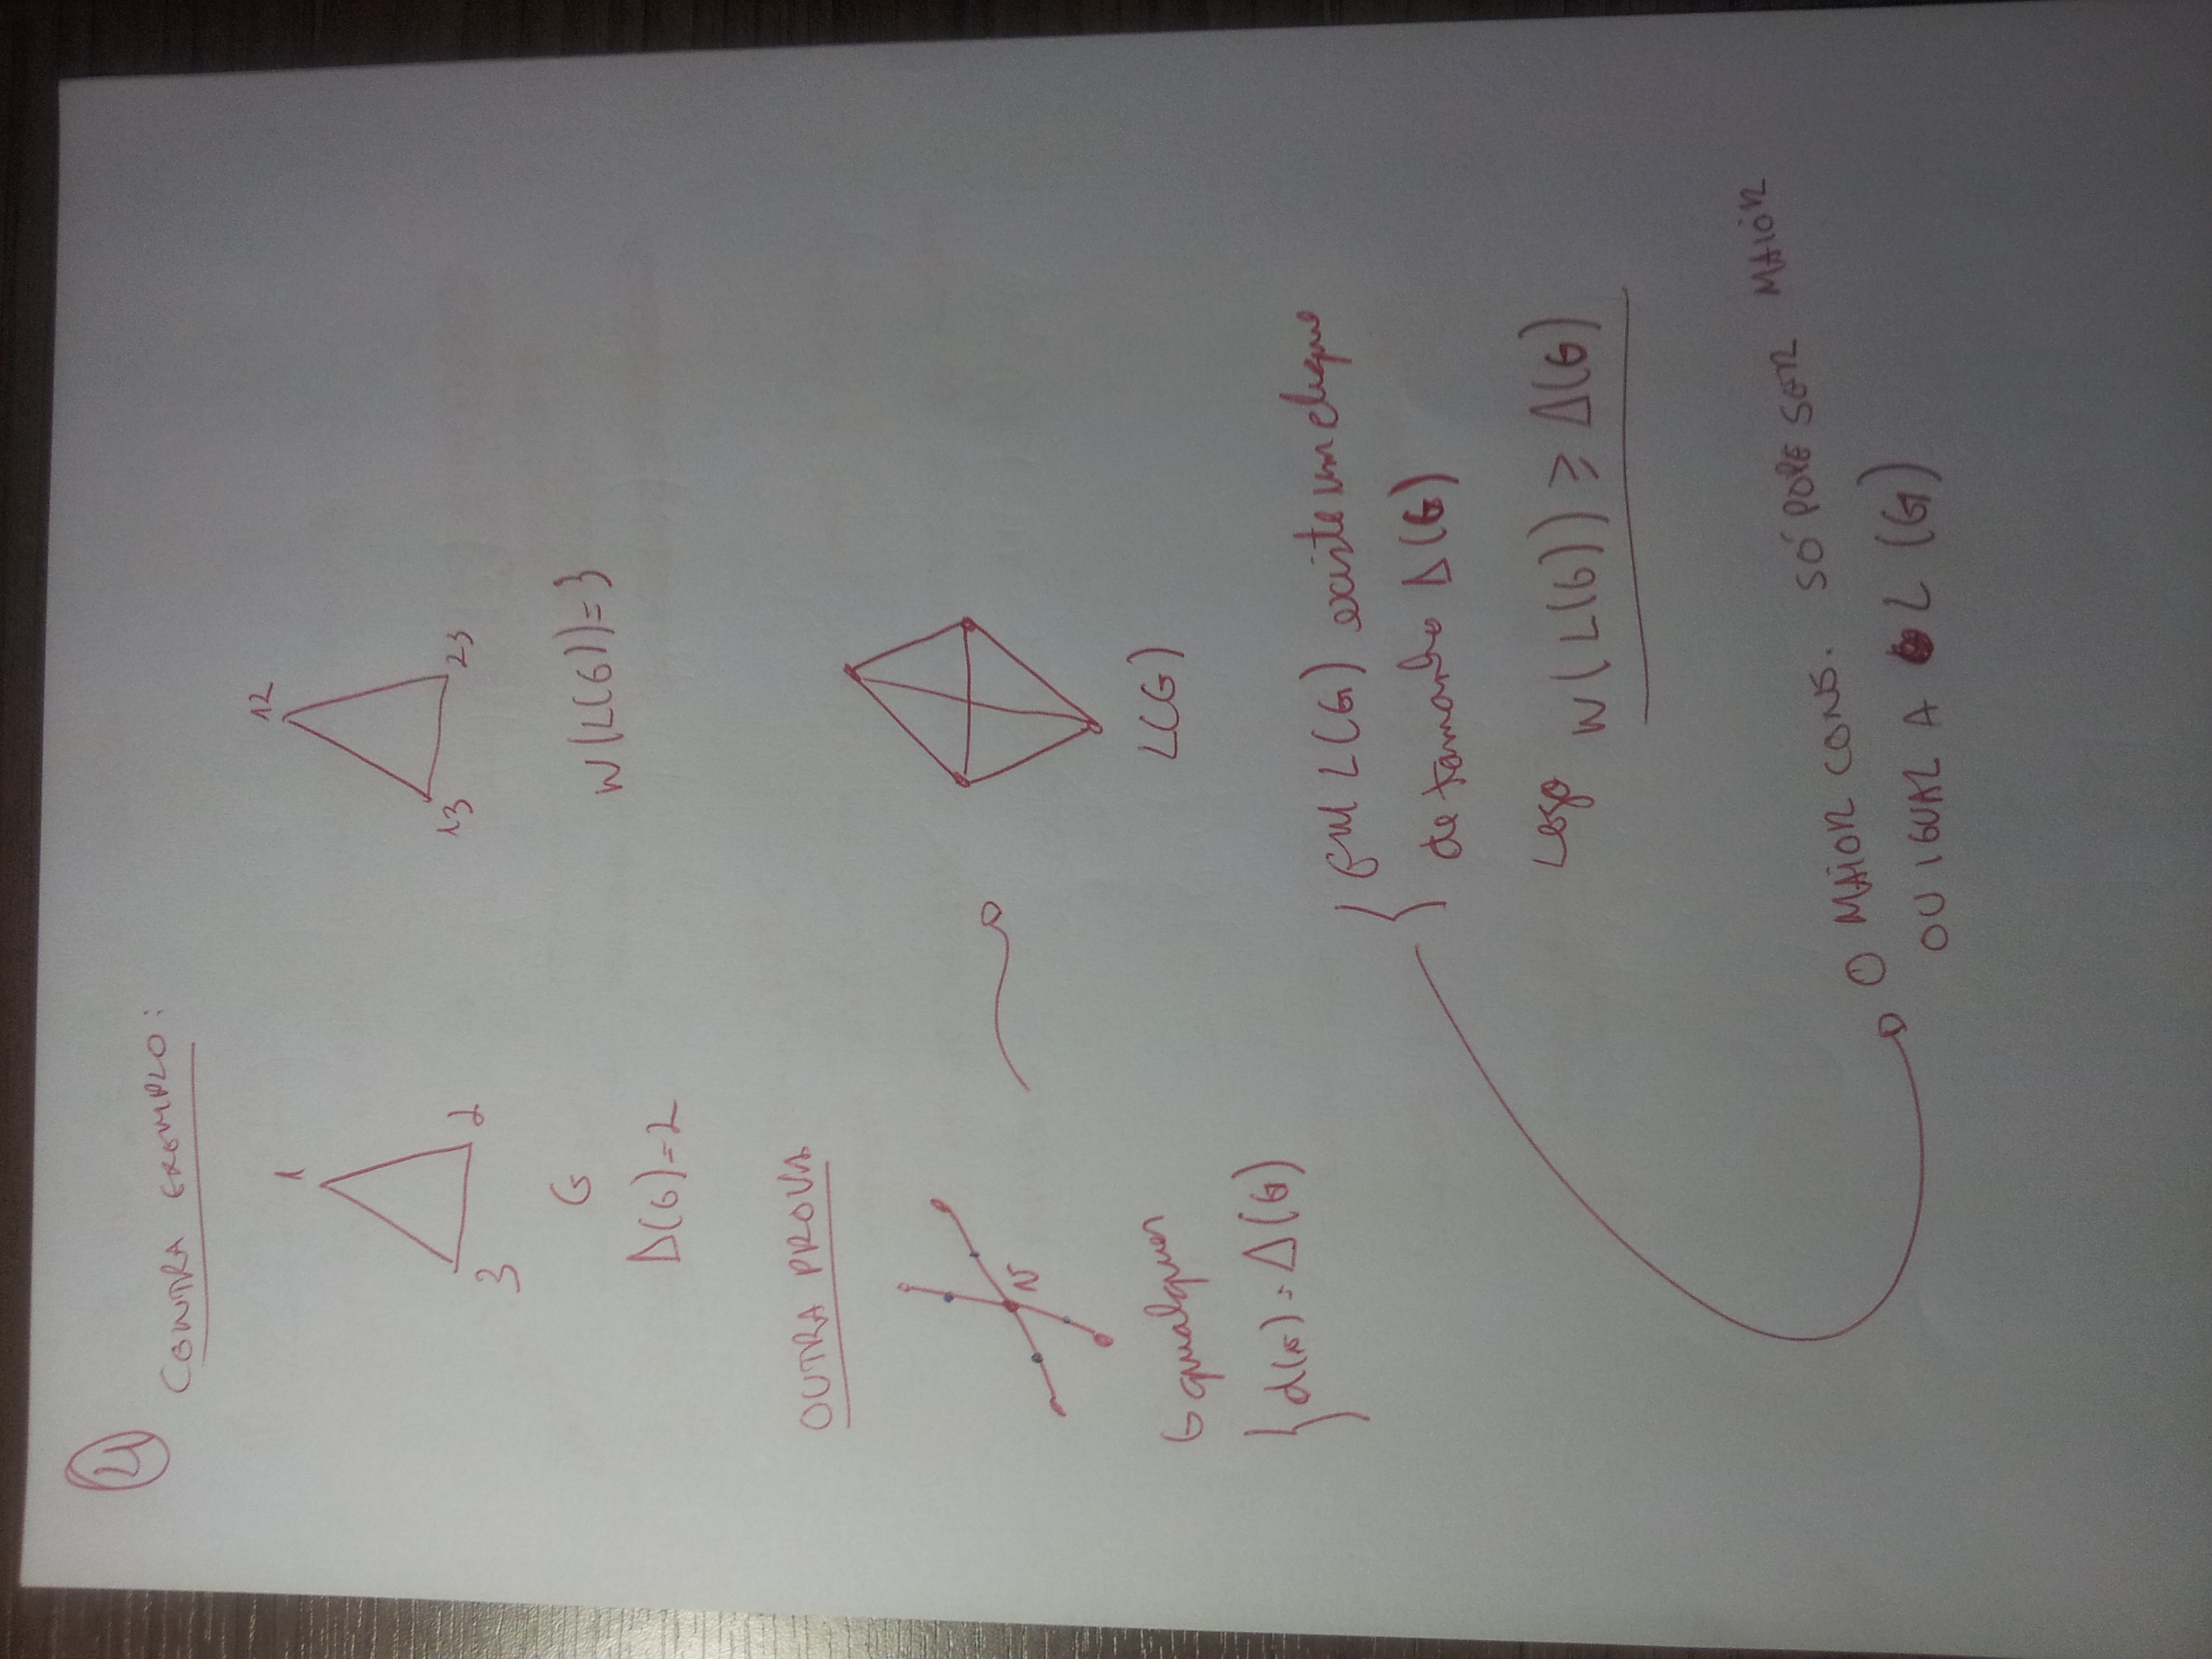 4
CONTRA EXEMPLO:
1
2
3
12
13
23
G
Δ(G)=2
W(L(G))=3
OUTRA PROVA
v
G qualquer
d(v)=Δ(G)
L(G)
Em L(G) existe um clique
de tamanho Δ(G)
Logo W(L(G)) ≥ Δ(G)
O MAIOR CONJ. SÓ PODE SER MAIOR
OU IGUAL A L(G)